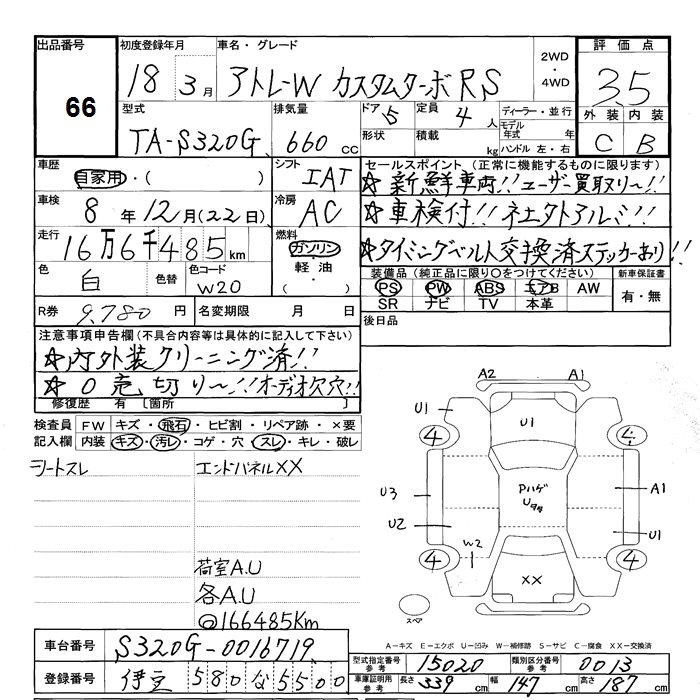 出品番号 初度登録年月 車名・グレード 2WD・4WD 評価点
66 18 3月 アトレーW カスタムターボRS 3.5
型式 排気量 ドア 5 定員 4人 ディーラー・並行 外装 内装
TA-S320G 660cc 形状 積載 kg モデル年式 年 ハンドル 左・右 C B
車歴 自家用・( ) シフト IAT セールスポイント(正常に機能するものに限ります)
☆新鮮車両!!ユーザー買取り〜!!
車検 8年12月(22日) 冷房 AC ☆車検付!!社外アルミ!!
走行 16万6千485km 燃料 ガソリン・軽油・( ) ☆タイミングベルト交換済ステッカーあり!!
色 白 色替 色コード W20 装備品(純正品に限り○をつけてください) 新車保証書
PS PW ABS エアB AW 有・無
SR ナビ TV 本革
R券 9,780円 名変期限 月 日 後日品
注意事項申告欄(不具合内容等は具体的に記入して下さい)
☆内外装クリーニング済!!
☆0売切り〜!!オーディオ欠穴!!
修復歴 有 [箇所 ]
検査員記入欄 FW キズ・飛石・ヒビ割・リペア跡・×要
内装 キズ・汚レ・コゲ・穴・スレ・キレ・破レ
シートスレ エンドパネルXX
荷室A.U
各A.U
@166485Km
A2 A1
U1 U1
4 4
U3 Pハゲ A1
Uタタ
U2 U1
W2
4 XX 4
スペア
A-キズ E-エクボ U-凹み W-補修跡 S-サビ C-腐食 XX-交換済
車台番号 S320G-0016719
登録番号 伊豆 580 な 5500
型式指定番号 参考 15020 類別区分番号 参考 0013
車庫証明用 参考 長さ 339cm 幅 147cm 高さ 187cm